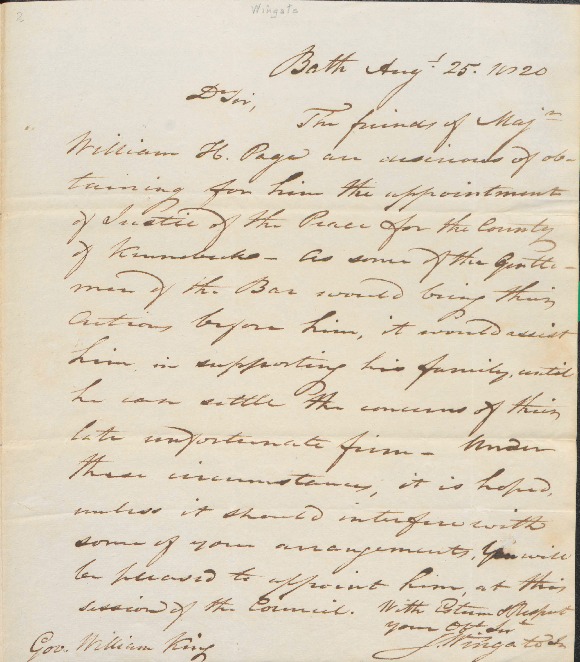 2
Wingate
Bath Augt 25. 1820
Dr Sir,
The friends of Majr
William H. Page are desirous of ob-
taining for him the appointment
of Justice of the Peace for the County
of Kennebeck - As some of the Gentle-
men of the Bar would bring their
actions before him, it would assist
him in supporting his family, until
he can settle the concerns of their
late unfortunate firm - Under
these circumstances, it is hoped,
unless it should interfere with
some of your arrangements, You will
be pleased to appoint him, at this
session of the Council. With Esteem & Respect
your Obt Sert
J Wingate Jr
Gov. William King